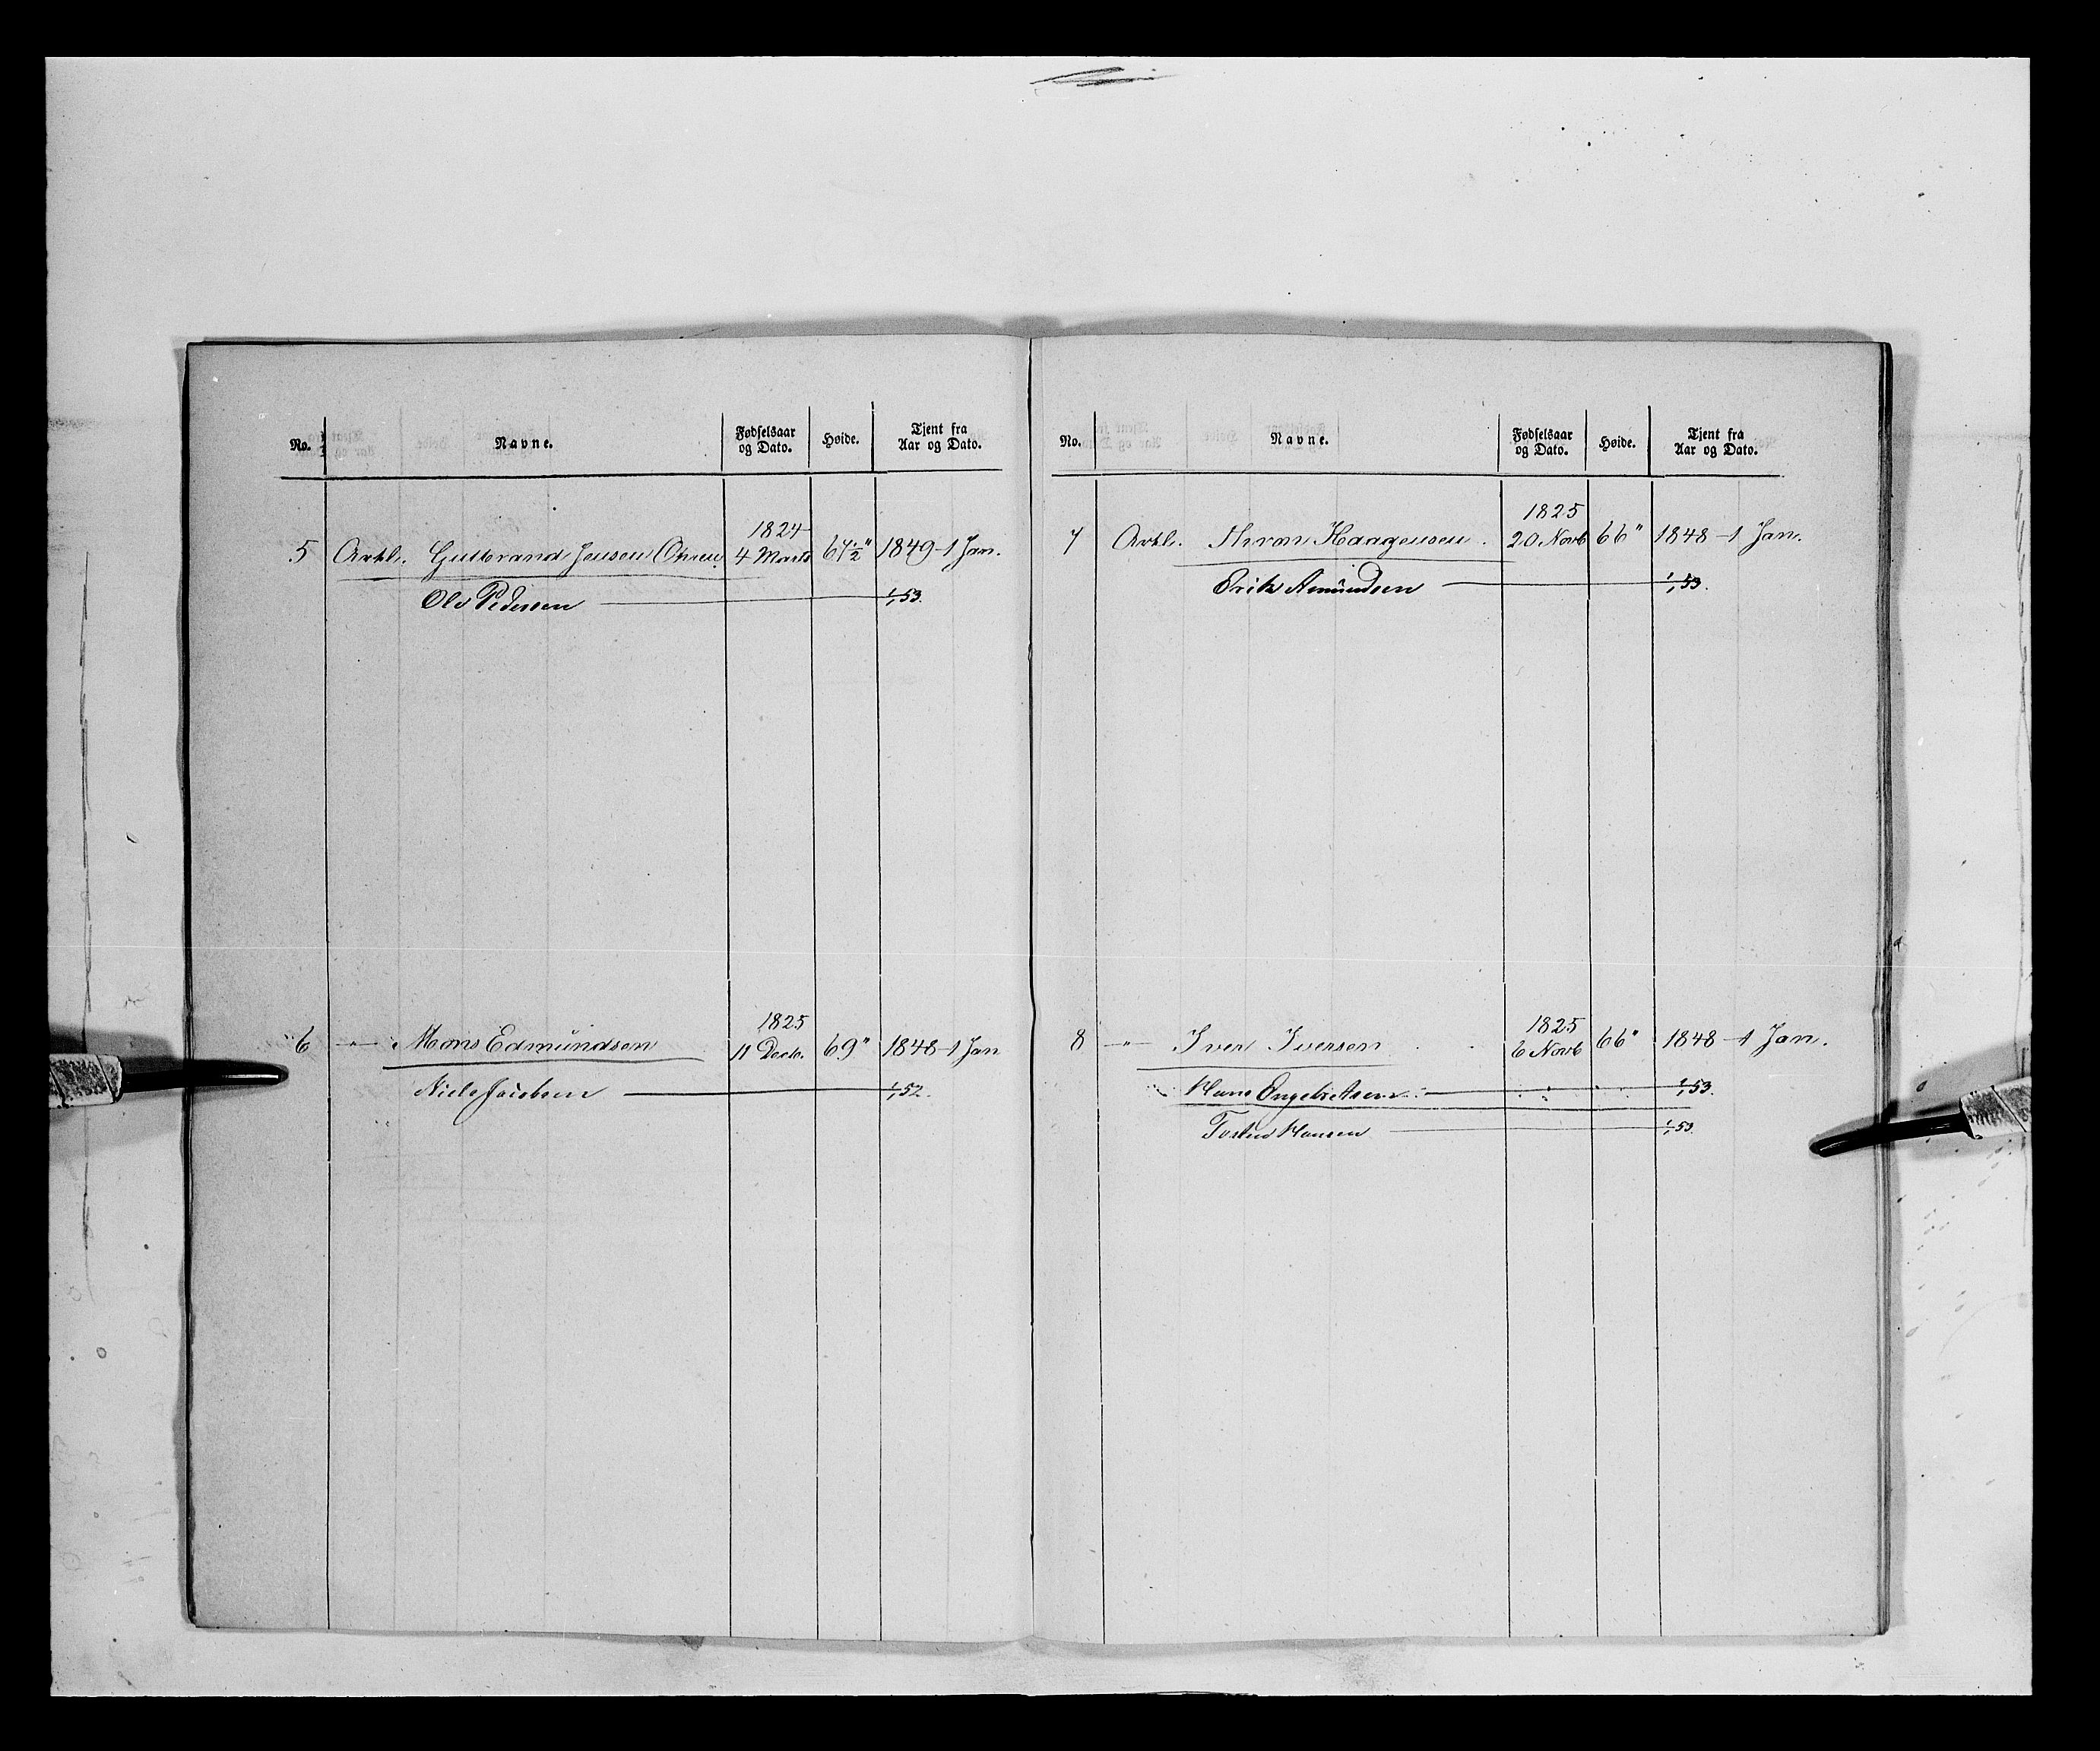 No. Navne. Fødselsaar og Dato. Høide. Tjent fra Aar og Dato.
1824
5 Artkl. Gulbrand Jensen 4 Marts 67½" 1849-1 Jan.
Ole Pedersen 1/1 53.
1825
6 -"- Mons Edmündsen 11 Decb. 69" 1848-1 Jan
Niels Jacobsen 1/1 52.
No. Navne. Fødselsaar og Dato. Høide. Tjent fra Aar og Dato.
1825
7 Artkl. Haagensen. 20 Novb 66" 1848-1 Jan.
Erik Amündsen 1/1 53.
1825
8 -"- Iver Iversen 6 Novb 66" 1848-1 Jan.
Hans Engebretsen 1/1 53.
Hansen 1/1 53.